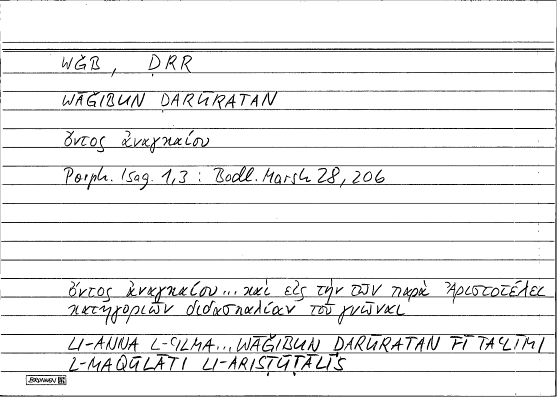 WǦB, ḌRR
WĀǦIBUN ḌARŪRATAN
ὄντος ἀναγκαίου
Porph. Isag. 1,3 : Bodl. Marsh 28, 206
ὄντος ἀναγκαίου... καὶ εἰς τὴν τῶν παρὰ Ἀριστοτέλει
κατηγοριῶν διδασκαλίαν τοῦ γνῶναι
LI-ANNA L-ʿILMA... WĀǦIBUN ḌARŪRATAN FĪ TAʿLĪMI
L-MAQŪLĀTI LI-ARISṬŪṬĀLĪS